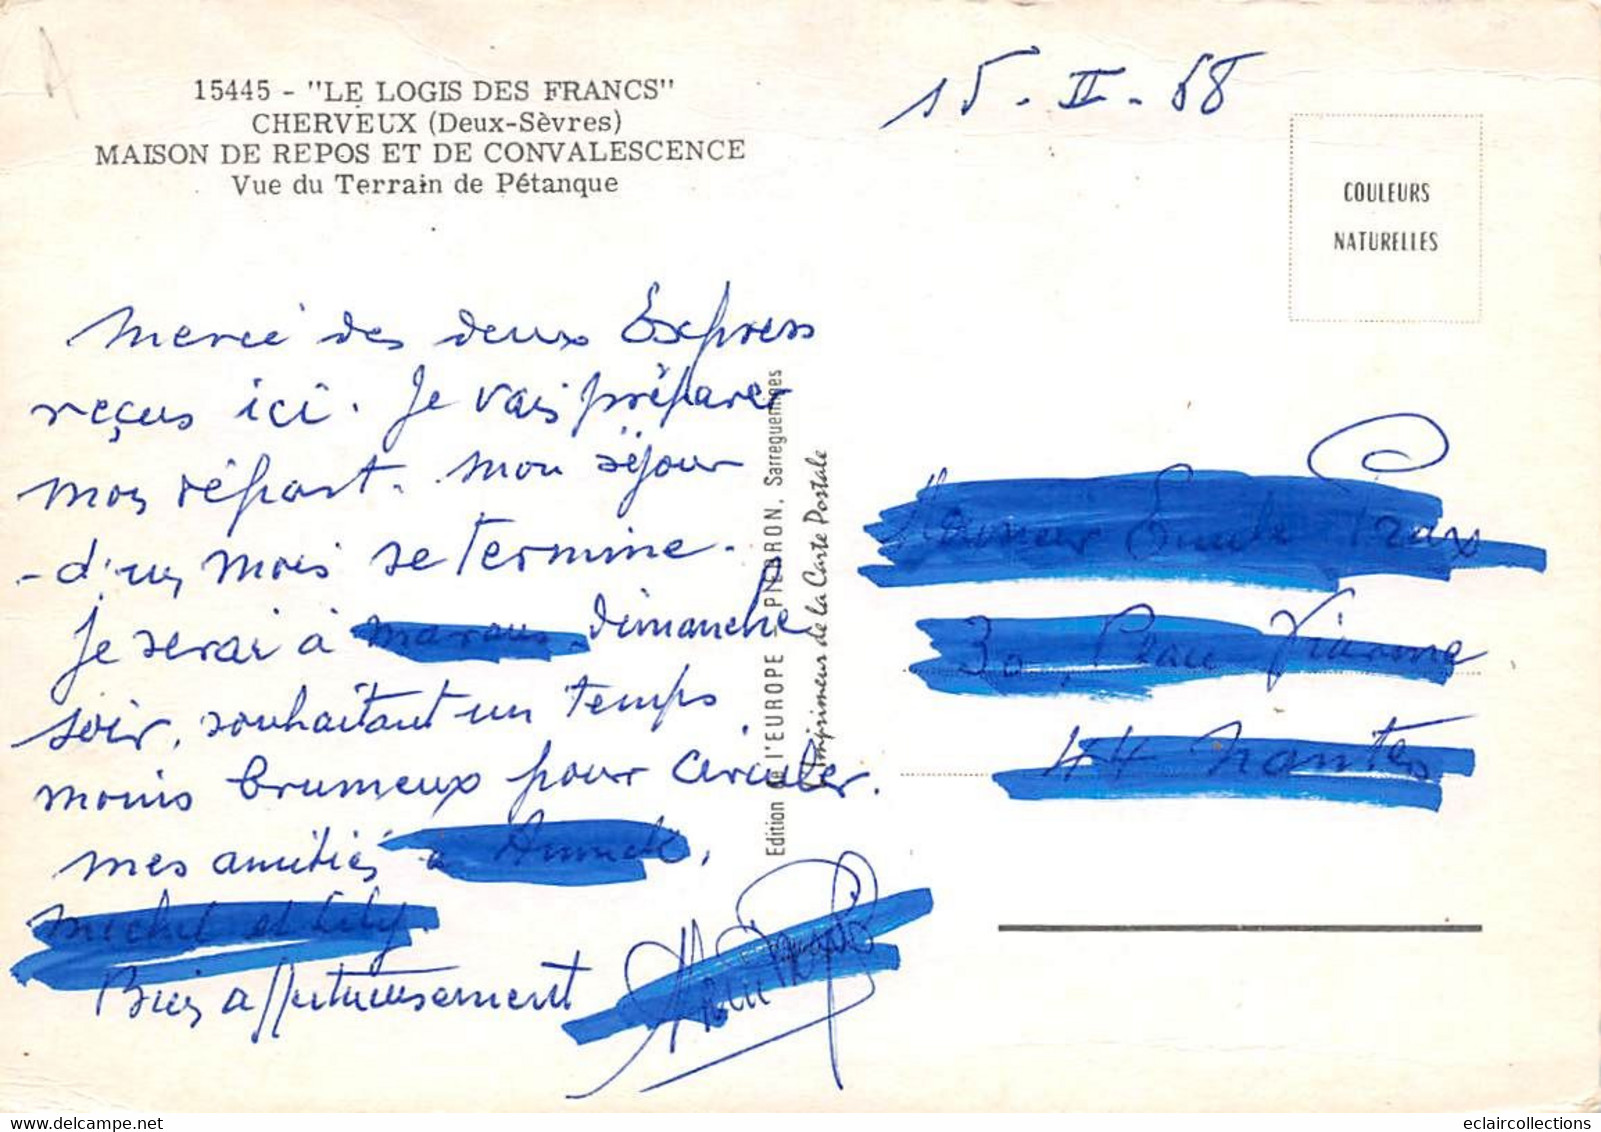 15445 - "LE LOGIS DES FRANCS"
CHERVEUX (Deux-Sèvres)
MAISON DE REPOS ET DE CONVALESCENCE
Vue du Terrain de Pétanque
15 - II - 68
COULEURS
NATURELLES
Merci des deux Express
reçus ici. Je vais préparer
mon départ. Mon séjour
- d'un mois se termine -
Je serai à dimanche
soir, souhaitant un temps
moins brumeux pour circuler.
mes amitiés à
Michel et Lily.
Bien affectueusement
Edition de l'EUROPE - PIERRON, Sarreguemines
L'Imprimeur de la Carte Postale
30, Place Viarme
44 Nantes
eclaircollections